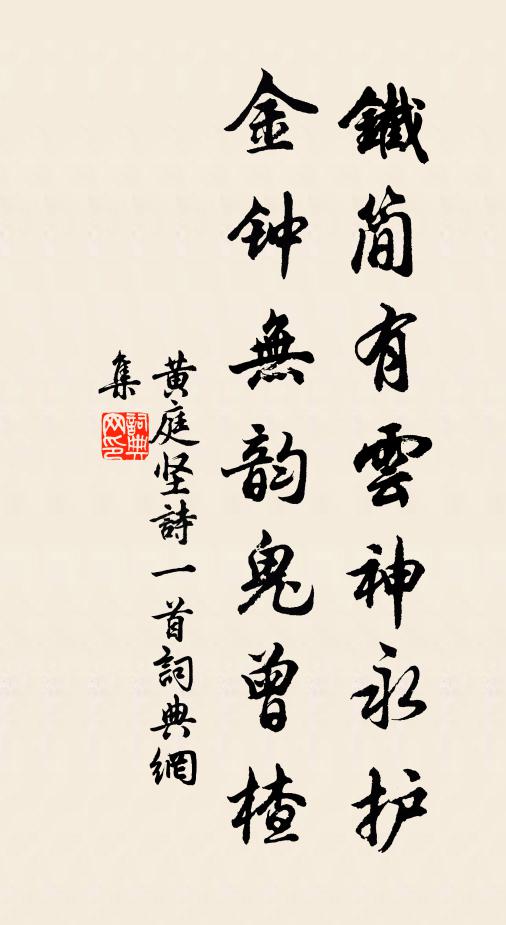 鐵简有雲神永护
金钟無韵鬼曾楂
黄庭坚詩一首詞典網
集
詞典
网印